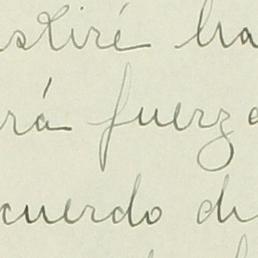 stiré ha
rá fuerza
cuerdo di